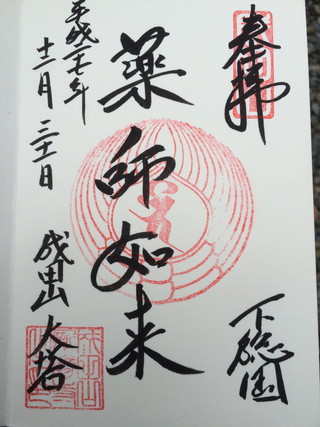 奉拝
下総国
薬師如来
平成二十七年
十二月三十一日
成田山
大塔